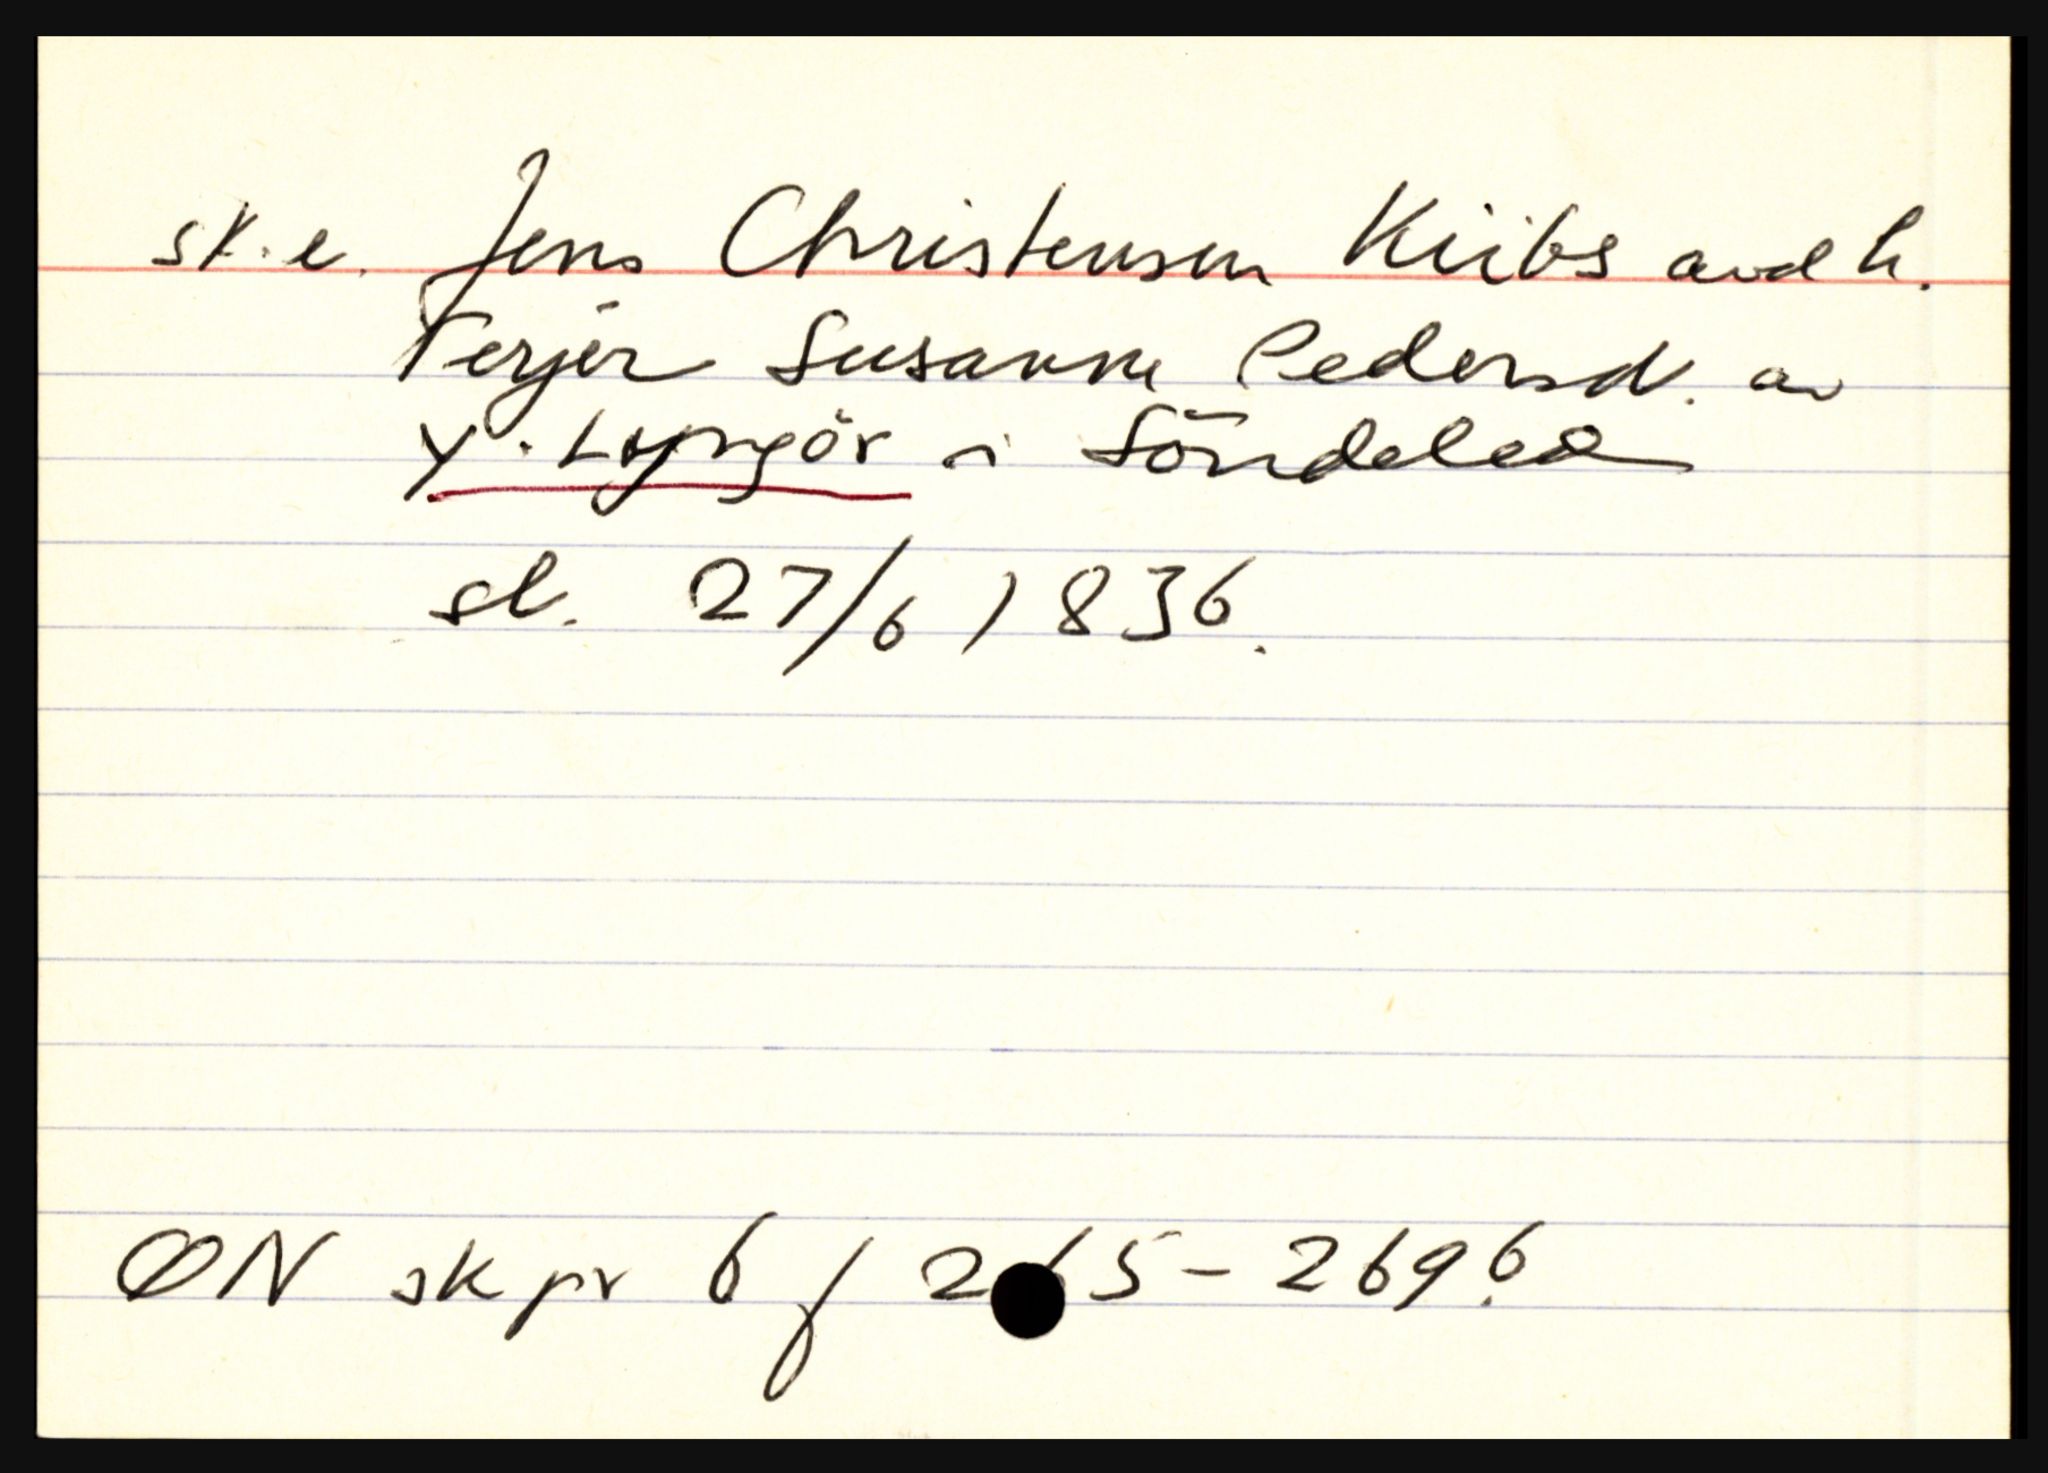 sk.e. Jens Christensen Kiibs avd h.
Terjer Susanne Pedersd. av
Y. Lyngör i Söndeled
sl. 27/6 1836.
ØN sk pr 6 f 265 - 269 b.